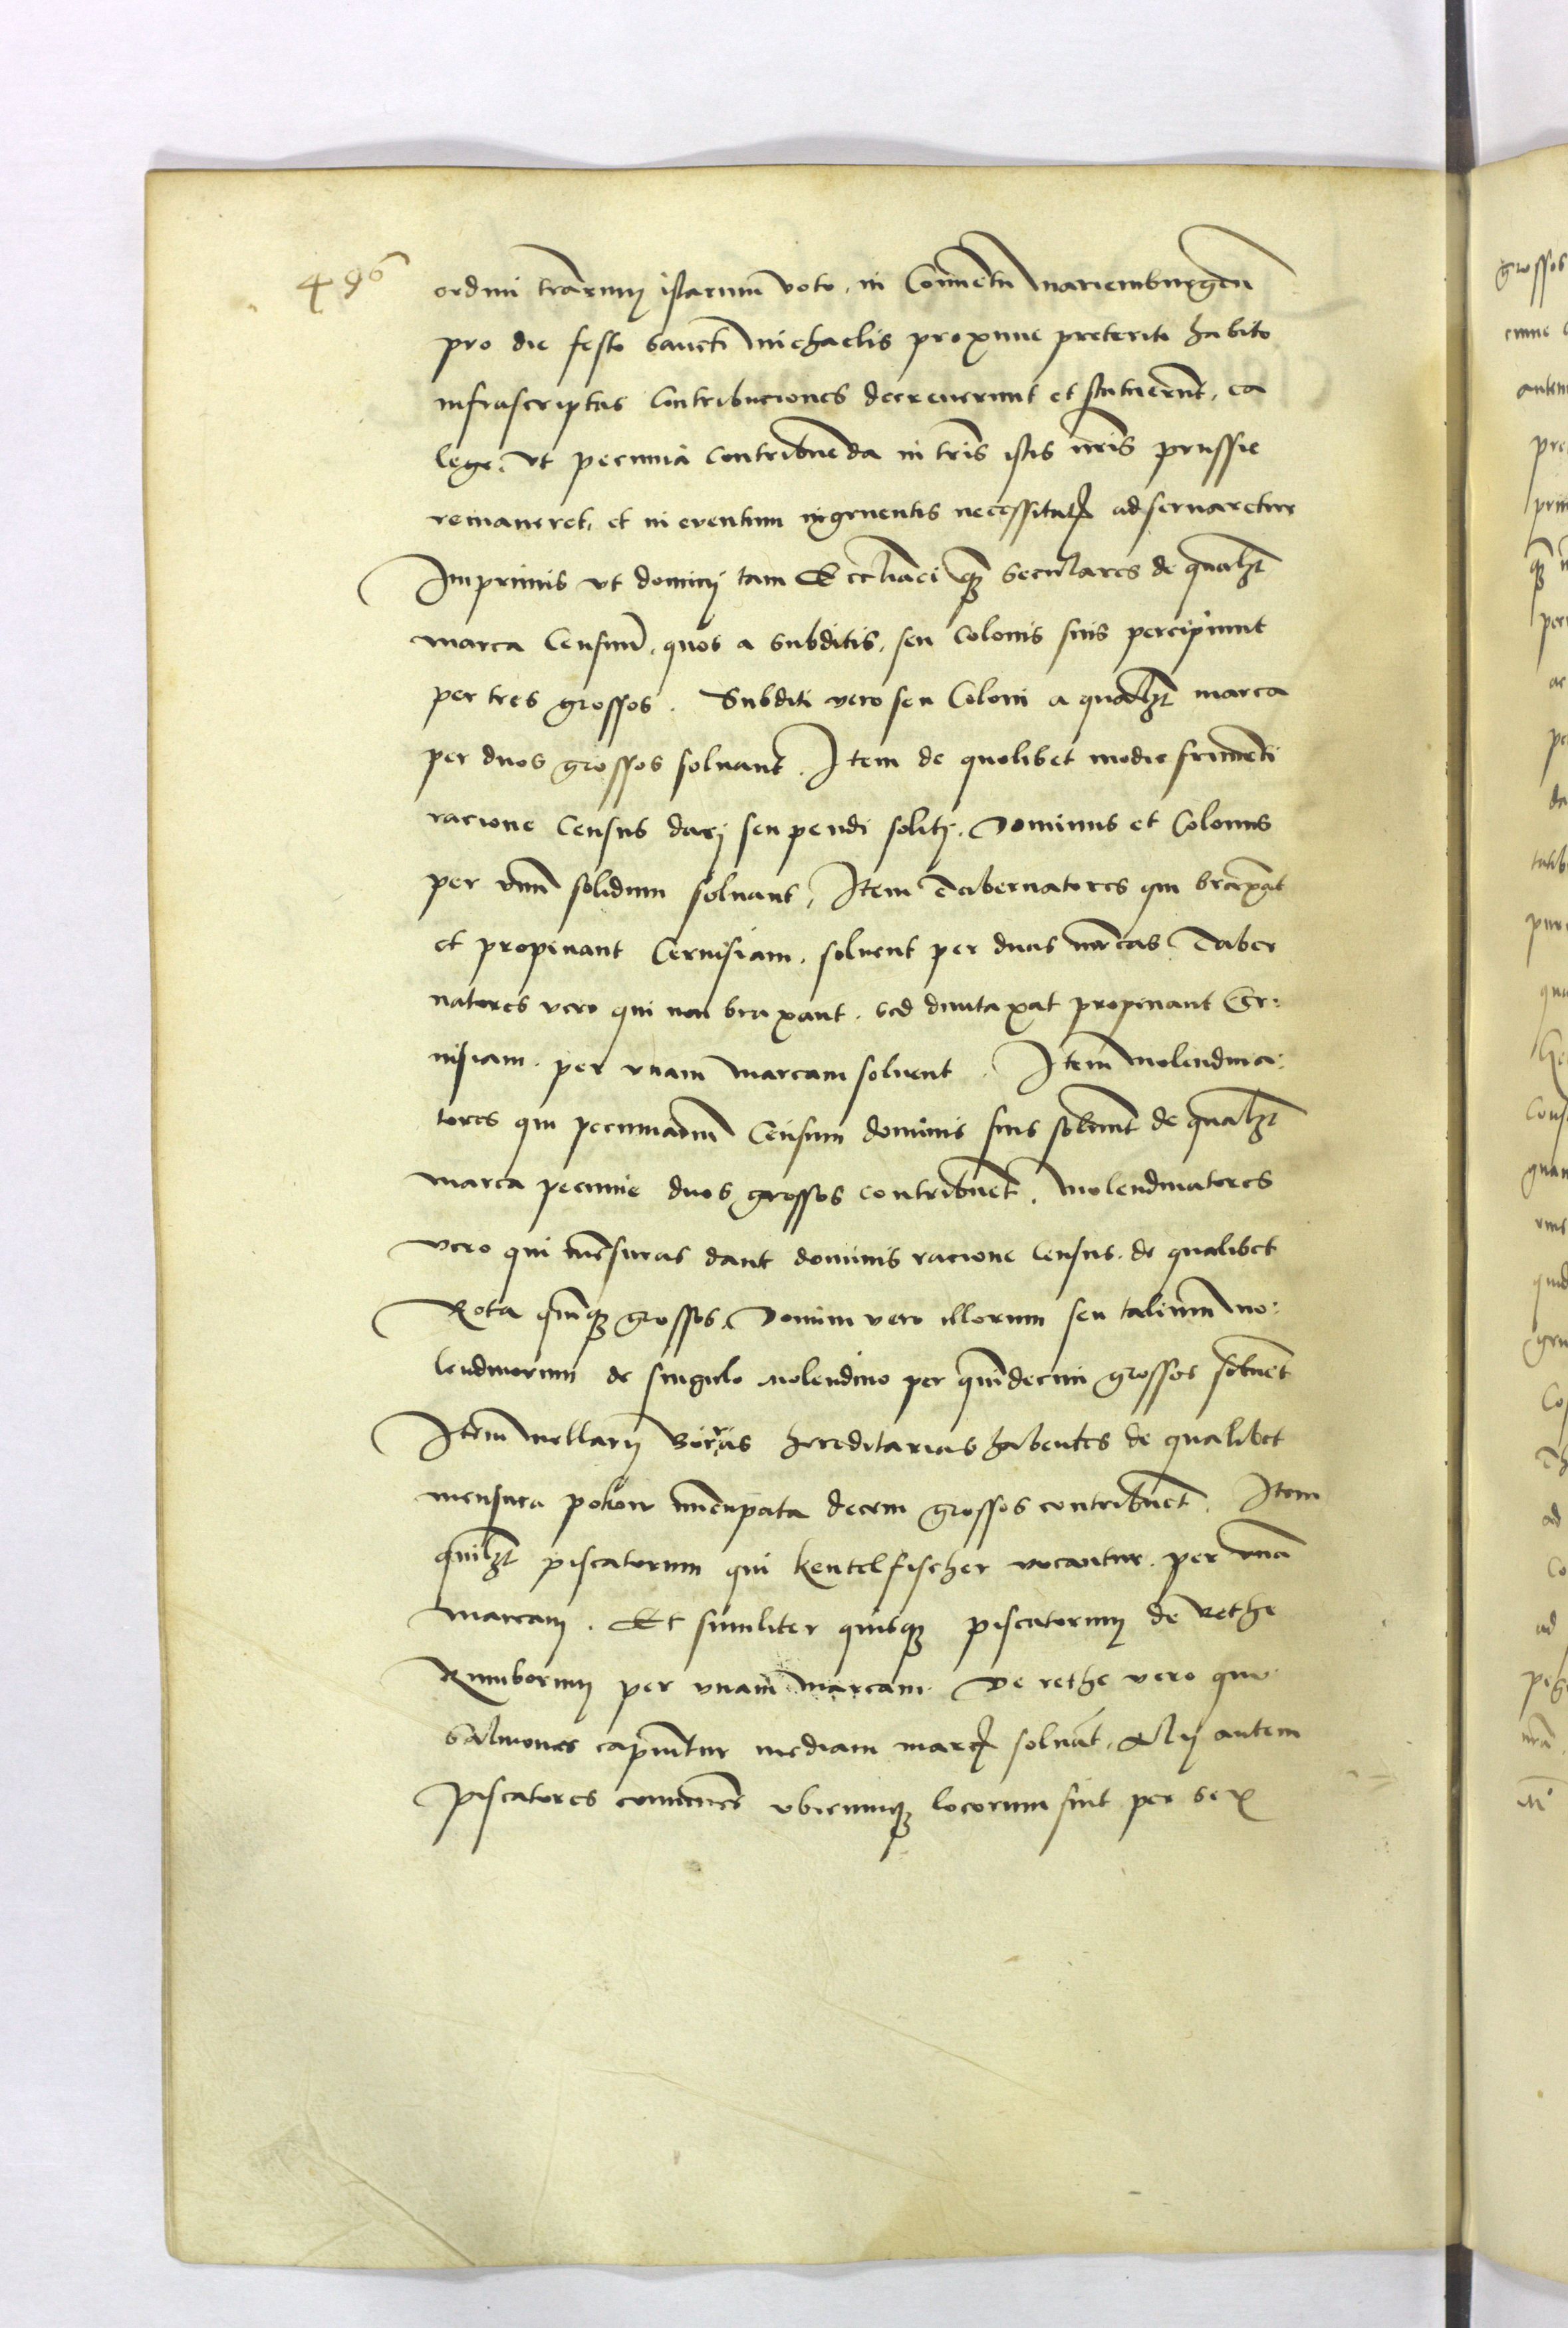 496
ordini trarum istarum voto, in Conuentu Mariemburgen
pro die festo Sancti Michaelis proxime preterito habito
infrascriptas Contribuciones decreuerunt et statuerunt, ea
lege, vt pecunia contribuenda in tris istis nris prussie
remaneret, et in euentum ingruentis necessitatis adseruaretur
Imprimis vt dominj tam Eccliaci qz Seculares de qualzt
marca Censuum, quos a Subditis, seu Colonis suis percipiunt
per tres grossos. Subditi vero seu Coloni a qualzt marca
per duos grossos soluant. Item de quolibet modio frumenti
racione Census darj seu pendi solitj, Dominus et Colonus
per vnu solidum soluant, Item Tabernatores qui braxat
et propinant Ceruisiam, soluent per duas mrcas Taber
natores vero qui non braxant, sed duntaxat propinant Cer:
uisiam, per vnam marcam soluent. Item molendina:
tores qui pecuniariu Censum dominis suis soluunt de qualzt
marca pecunie duos grossos contribuent, Molendinatores
vero qui mesuras dant dominis racione Census, de qualibet
Rota quiqz grossos, Domini vero illorum seu talium mo:
lendinorum de singulo Molendino per quindecim grossos soluet
Item Mellarij Borras hereditarias habentes de qualibet
mensura pokow nucupata decem grossos contribuet. Item
quilzt piscatorum qui kentelfischer vocantur, per vna
marcam. Et similiter quisqz piscatorum de rethe
Rumborum per vnam marcam. De rethe vero quo
Salmones capiuntur mediam marcam soluat, Alij autem
piscatores communes vbicumqz locorum sint per sex